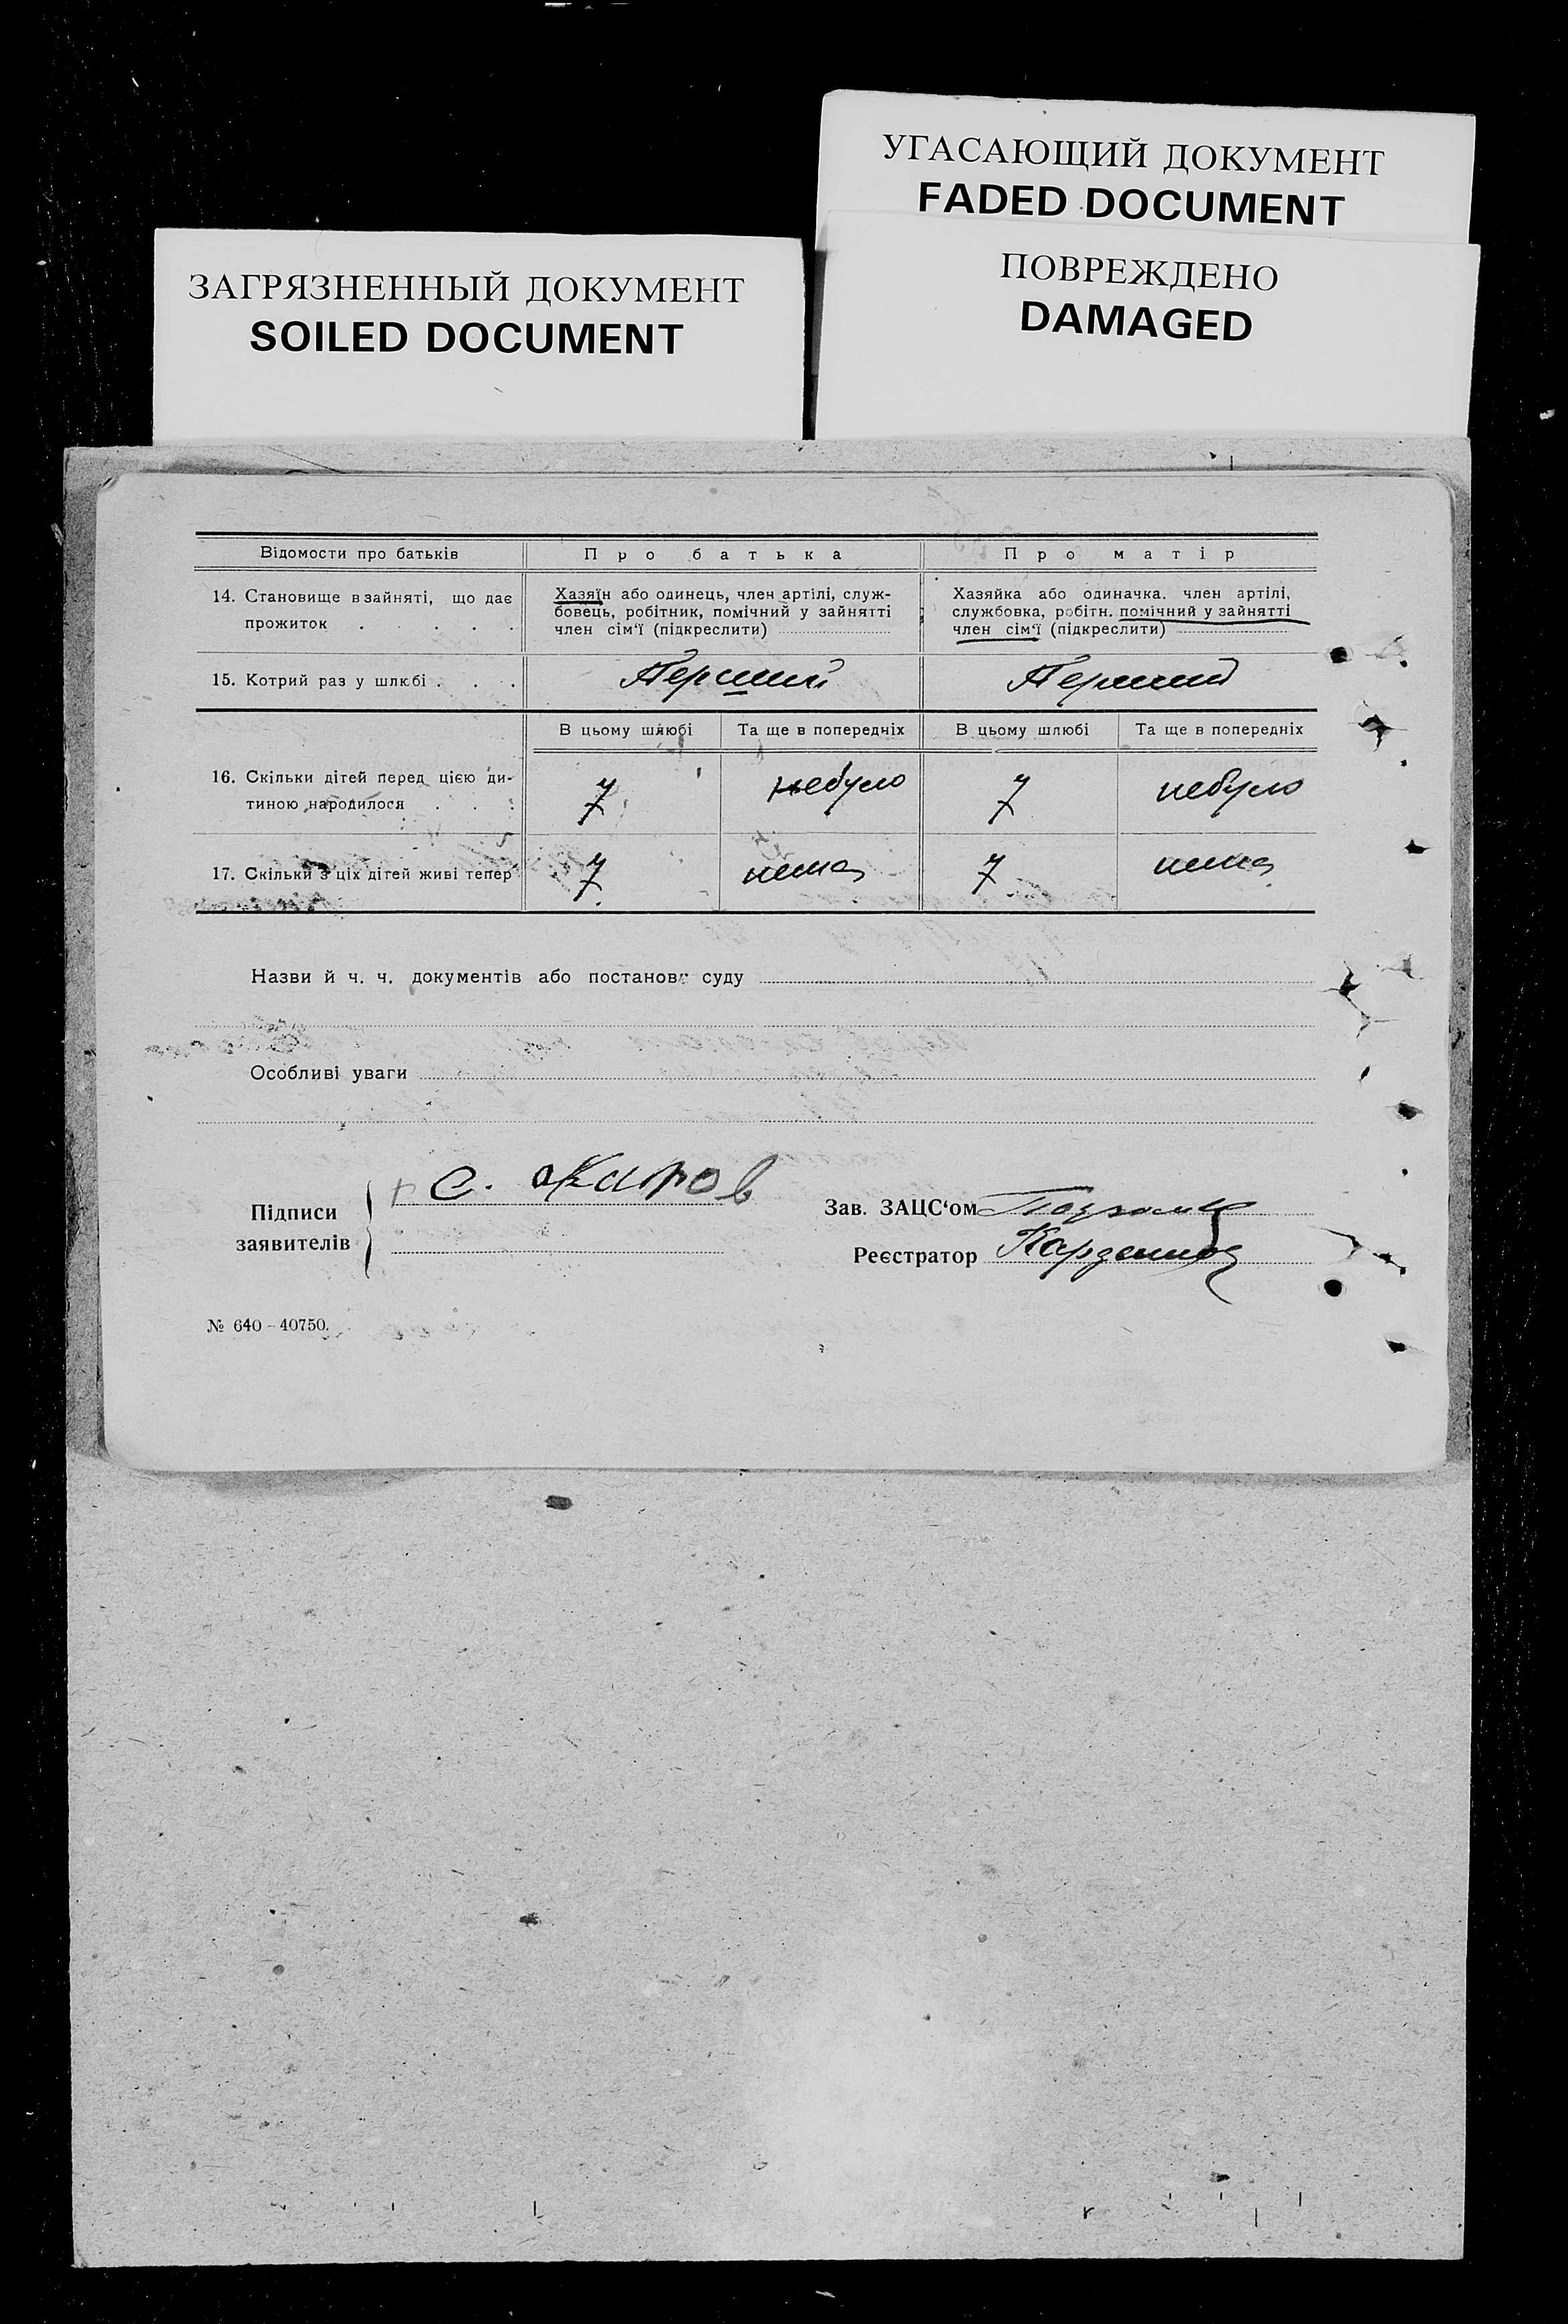 УГАСАЮЩИЙ ДОКУМЕНТ
FADED DOCUMENT
ЗАГРЯЗНЕННЫЙ ДОКУМЕНТ
SOILED DOCUMENT
ПОВРЕЖДЕНО
DAMAGED
Відомости про батьків Про батька Про матір
14. Становище в зайняті, що дає
прожиток
Хазяїн або одинець, член артілі, служ-
бовець, робітник, помічний у зайнятті
член сім'ї (підкреслити)
Хазяйка або одиначка. член артілі,
службовка, робітн. помічний у зайнятті
член сім'ї (підкреслити)
15. Котрий раз у шлюбі Перший Перший
В цьому шлюбі Та ще в попередніх В цьому шлюбі Та ще в попередніх
16. Скільки дітей перед цією ди-
тиною народилося
7 небуло 7 небуло
17. Скільки з ціх дітей живі тепер 7 нема 7 нема
Назви й ч. ч. документів або постанови суду
Особливі уваги
Підписи
заявителів
С.
Зав. ЗАЦС'ом
Реєстратор
№ 640 - 40750.